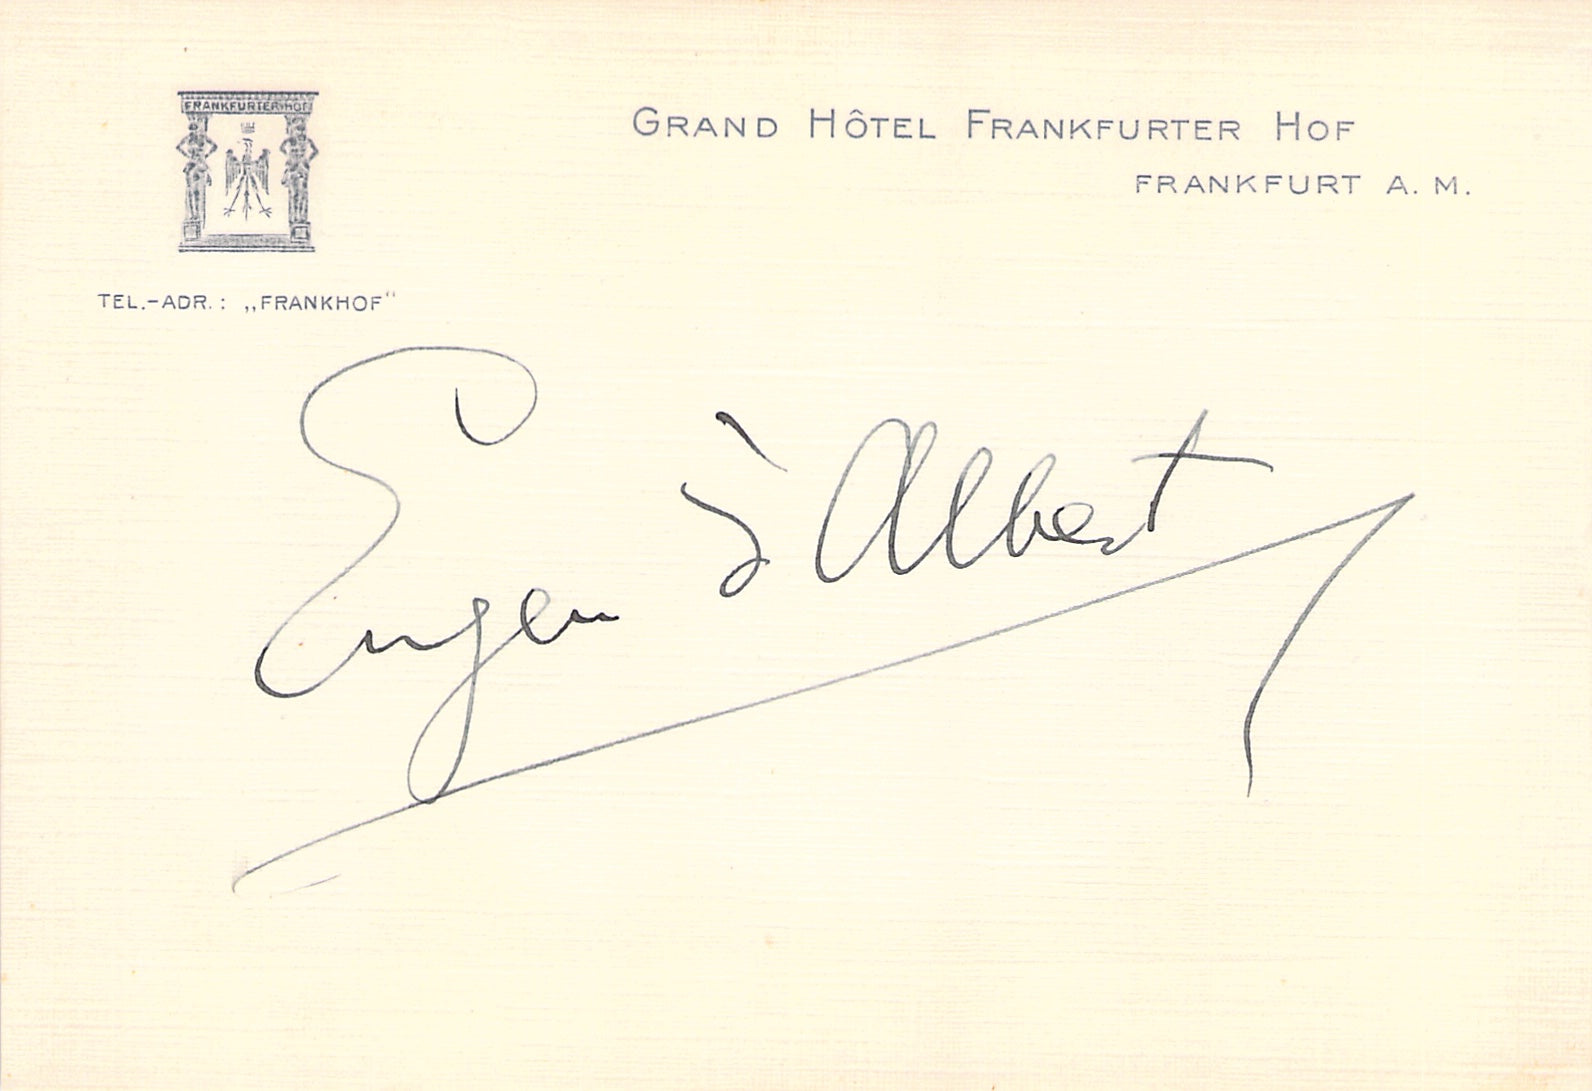 FRANKFURTER HOF
GRAND HÔTEL FRANKFURTER HOF
FRANKFURT A. M.
TEL.-ADR.: „FRANKHOF“
Eugen d'Albert